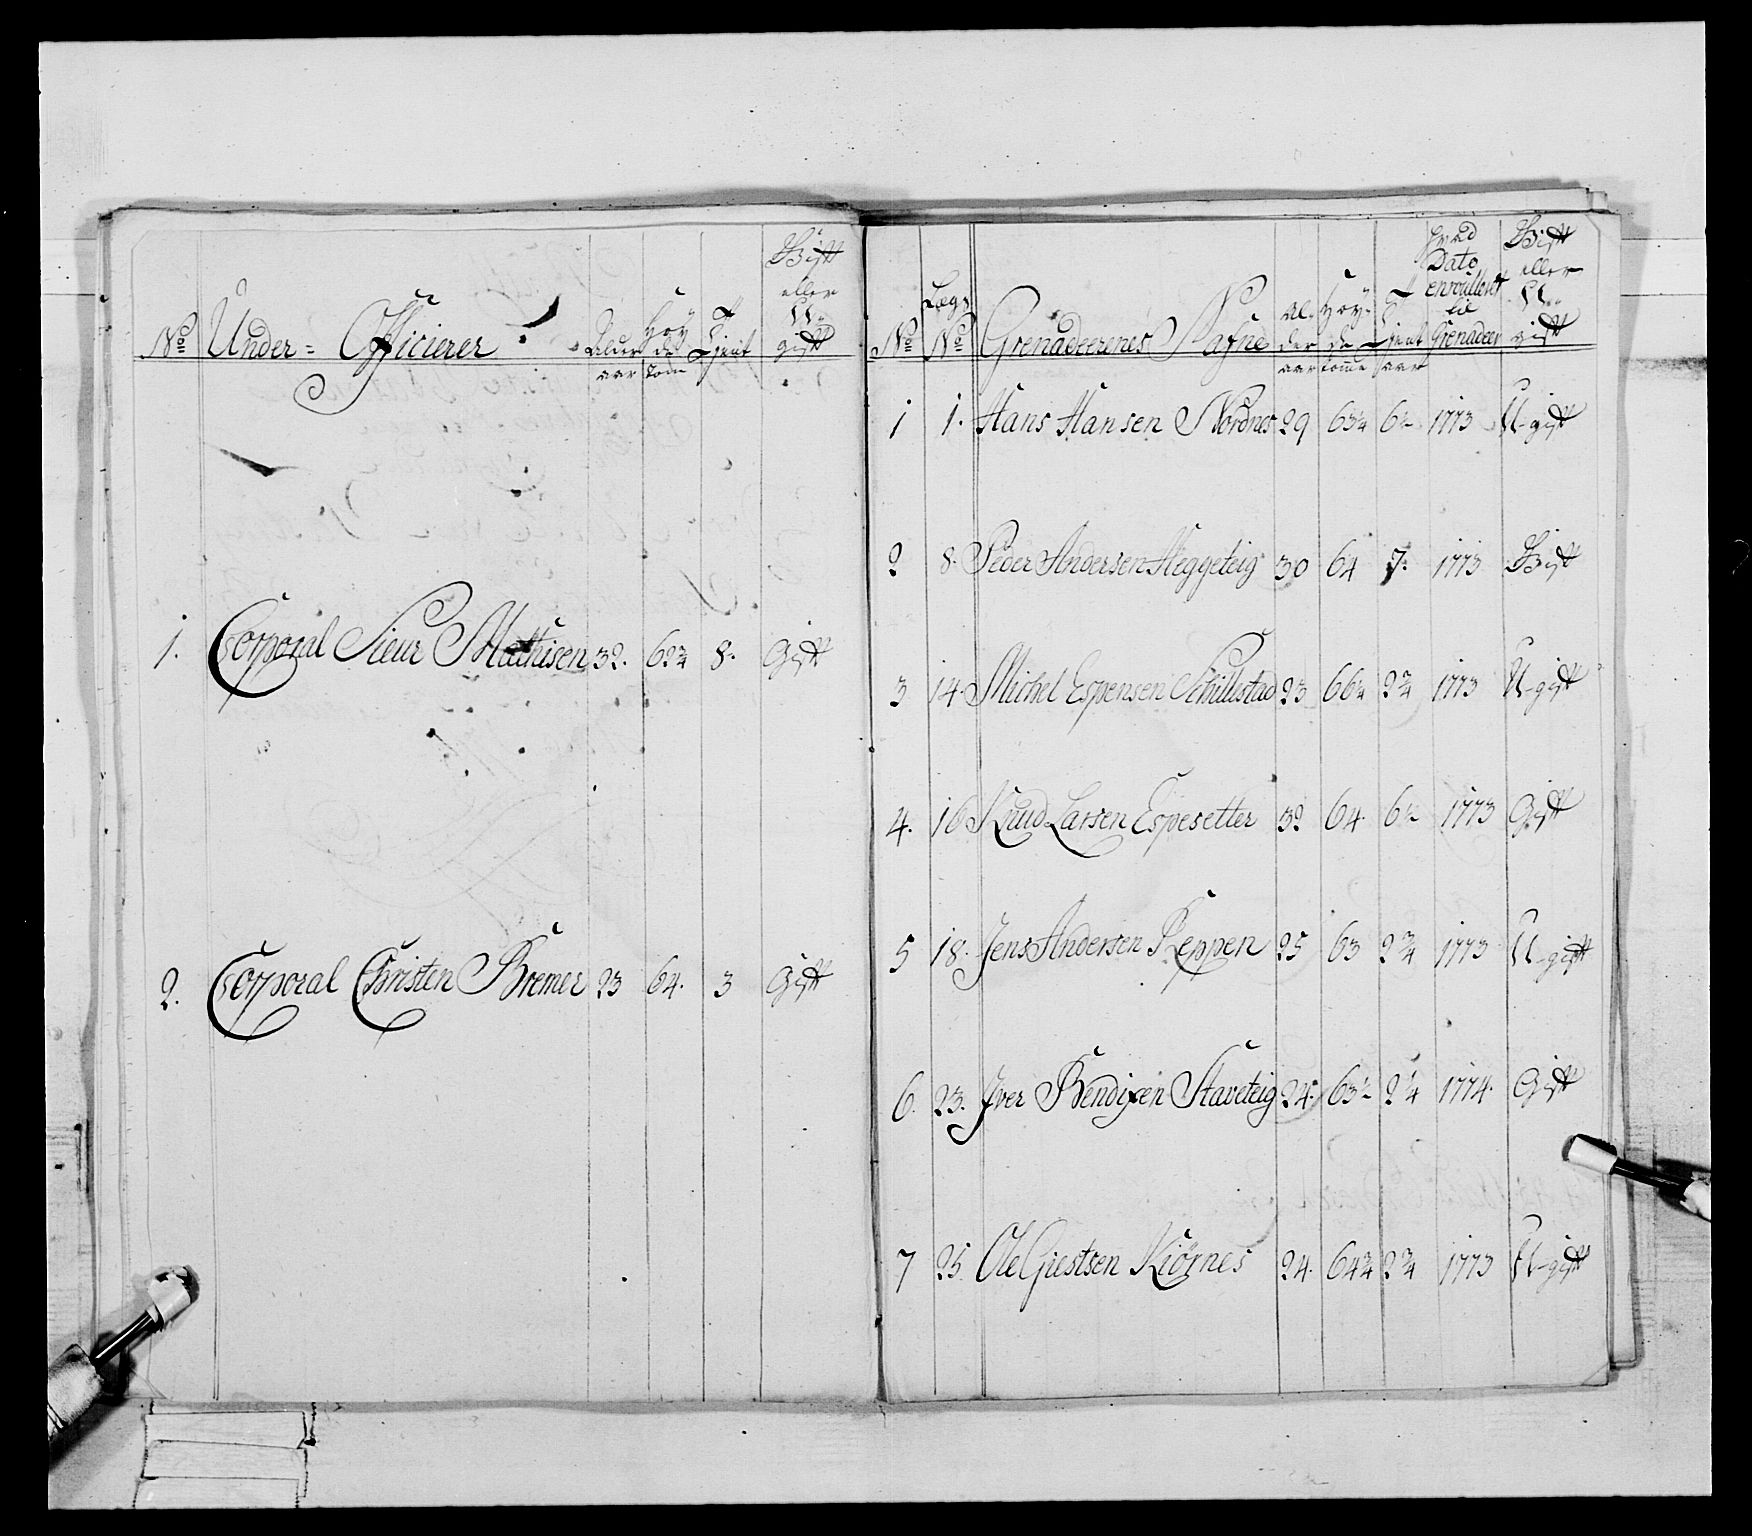 No Under= Officierer Alder aar Høyde tom Tjent Gift eller U-gift
1. Corporal Sieur Mathisen 32. 62¾ 8. Gift
2. Corporal Christen Bremer 23 64. 3 Gift
No Lægs No Grenadeerenes Nafne Alder aar Høyde tomme Tjent aar hvad Dato enroulleret til Grenadeer Gift eller U-gift
1 1. Hans Hansen Nordnes 29 63¼ 6½ 1773 U-gift
2 8. Peder Andersen Heggeteig 30 64 7. 1773 Gift
3 14. Michel Espensen Schillestad 23 66¼ 2¾ 1773 U-gift
4. 16 Knud Larsen Espesetter 32 64. 6½ 1773 Gift
5 18. Jens Andersen Reppen 25 63 2¾ 1773 U-gift
6. 23. Iver Bendixen Staveteig 24. 63½ 2¼ 1774. Gift
7 25. Ole Giestsen Kiørnes 24. 64¾ 2¾ 1773 U-gift